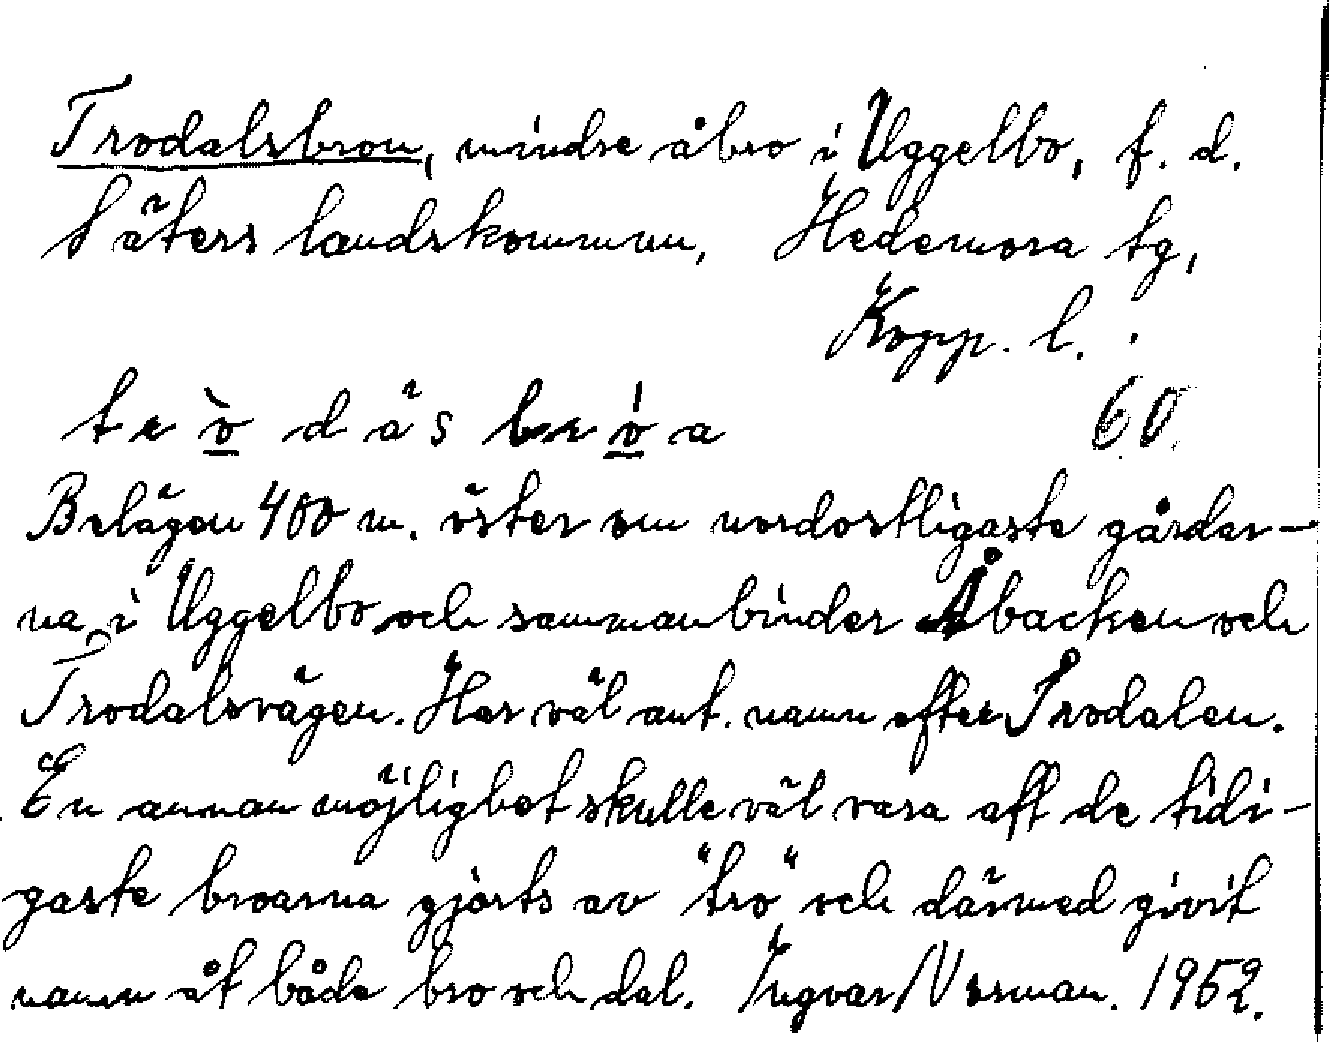 Trodalsbron, mindre åbro i Uggelbo, f. d.
Säters landskommun, Hedemora tg,
Kopp. l.
t r ò d ä s b r ó a 60.
Belägen 400 m. öster om nordostligaste gårdar-
na i Uggelbo och sammanbinder Åbacken och
Trodalsvägen. Har väl ant. namn efter Trodalen.
En annan möjlighet skulle väl vara att de tidi-
gaste broarna gjorts av "tro" och därmed givit
namn åt både bro och dal. Ingvar Norman. 1952.